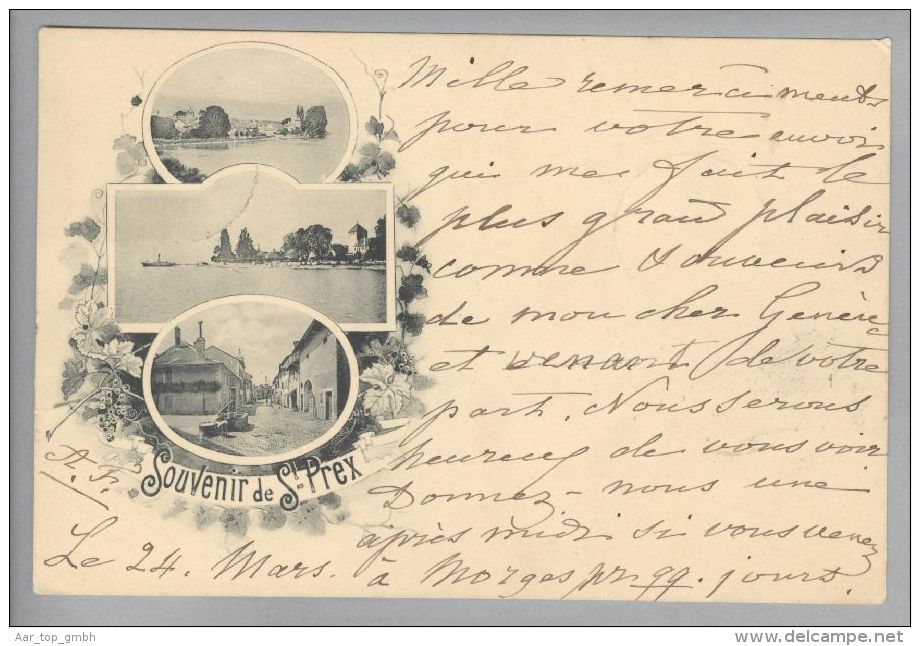 Mille remerciments
pour votre envoi
qui me fait le
plus grand plaisir
comme souvenirs
de mon cher Genève
et venant de votre
part. Nous serons
heureux de vous voir
Donnez-nous une
après midi si vous venez
à Morges pr qq. jours.
A. F.
Souvenir de St-Prex
Le 24. Mars.
Aar_top_gmbh
www.delcampe.net